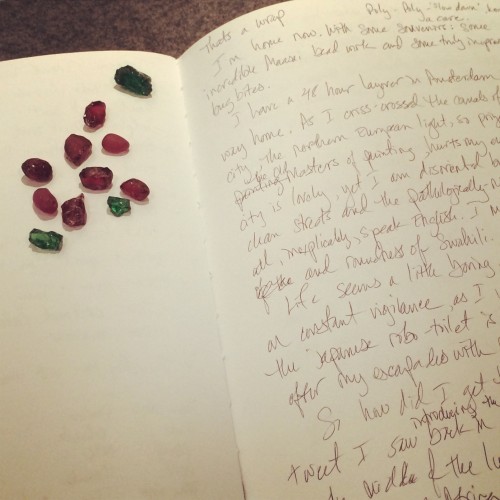 Poly - Poly - "Hawdawa"
That's a wrap
I'm home now. With some souvenirs: some
incredible Maasai bead work and some truly impre
bug bites.
I have a 48 hour layover in Amsterdam
way home. As I criss-crossed the canals of
city, the northern European light, so
the old
painting masters of painting, hurts my
city is lovely yet I am disoriented
clean streets and the pathologically
all, inexplicably, speak English. I
the and roundness of Swahili.
Life seems a little boring
on constant vigilance, as I
the Japanese robo-toilet is
after my escapades with
So how did I get
introducing the
tweet I saw back in
the middle of the